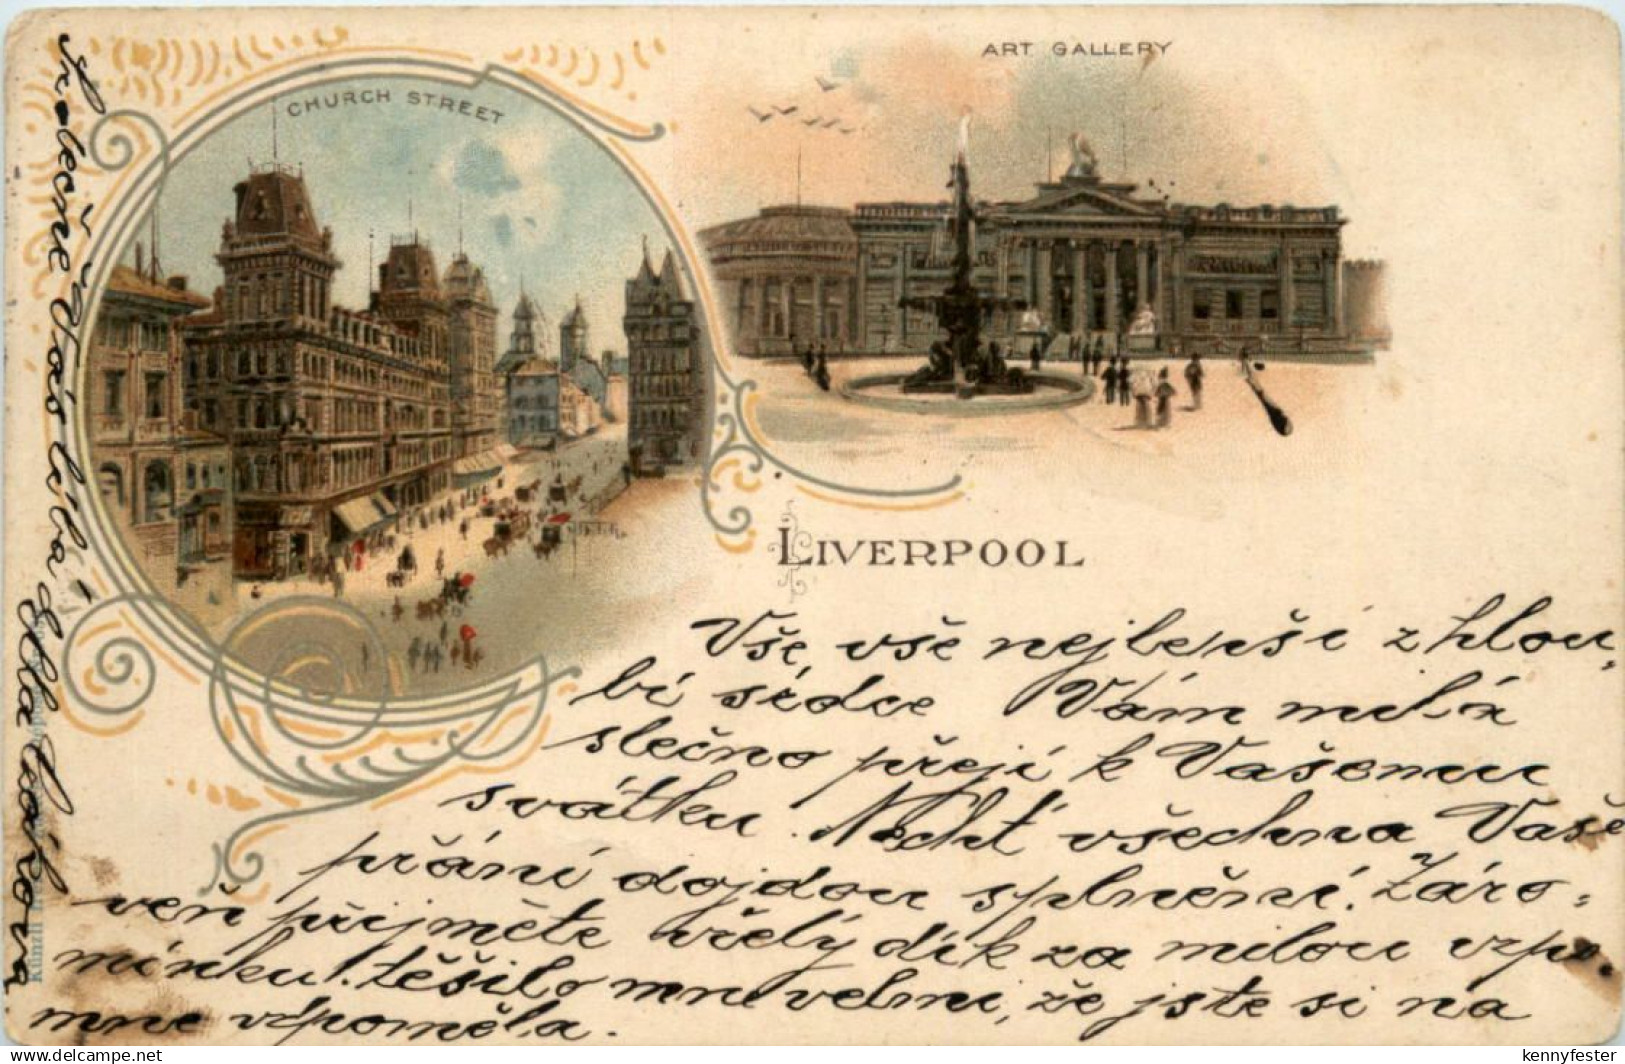 CHURCH STREET
ART GALLERY
LIVERPOOL
Vše, vše nejlepší z hlou-
bi srdce Vám milá
slečno přeji k Vašemu
svátku. Nechť všechna Vaše
přání dojdou splnění. Záro-
veň přijměte vřelý dík za milou vzpo-
mínku! těšilo mne velmi, že jste si na
mne vzpoměla.
Srdečně Vás líbá
Künzli
www.delcampe.net
kennyfester